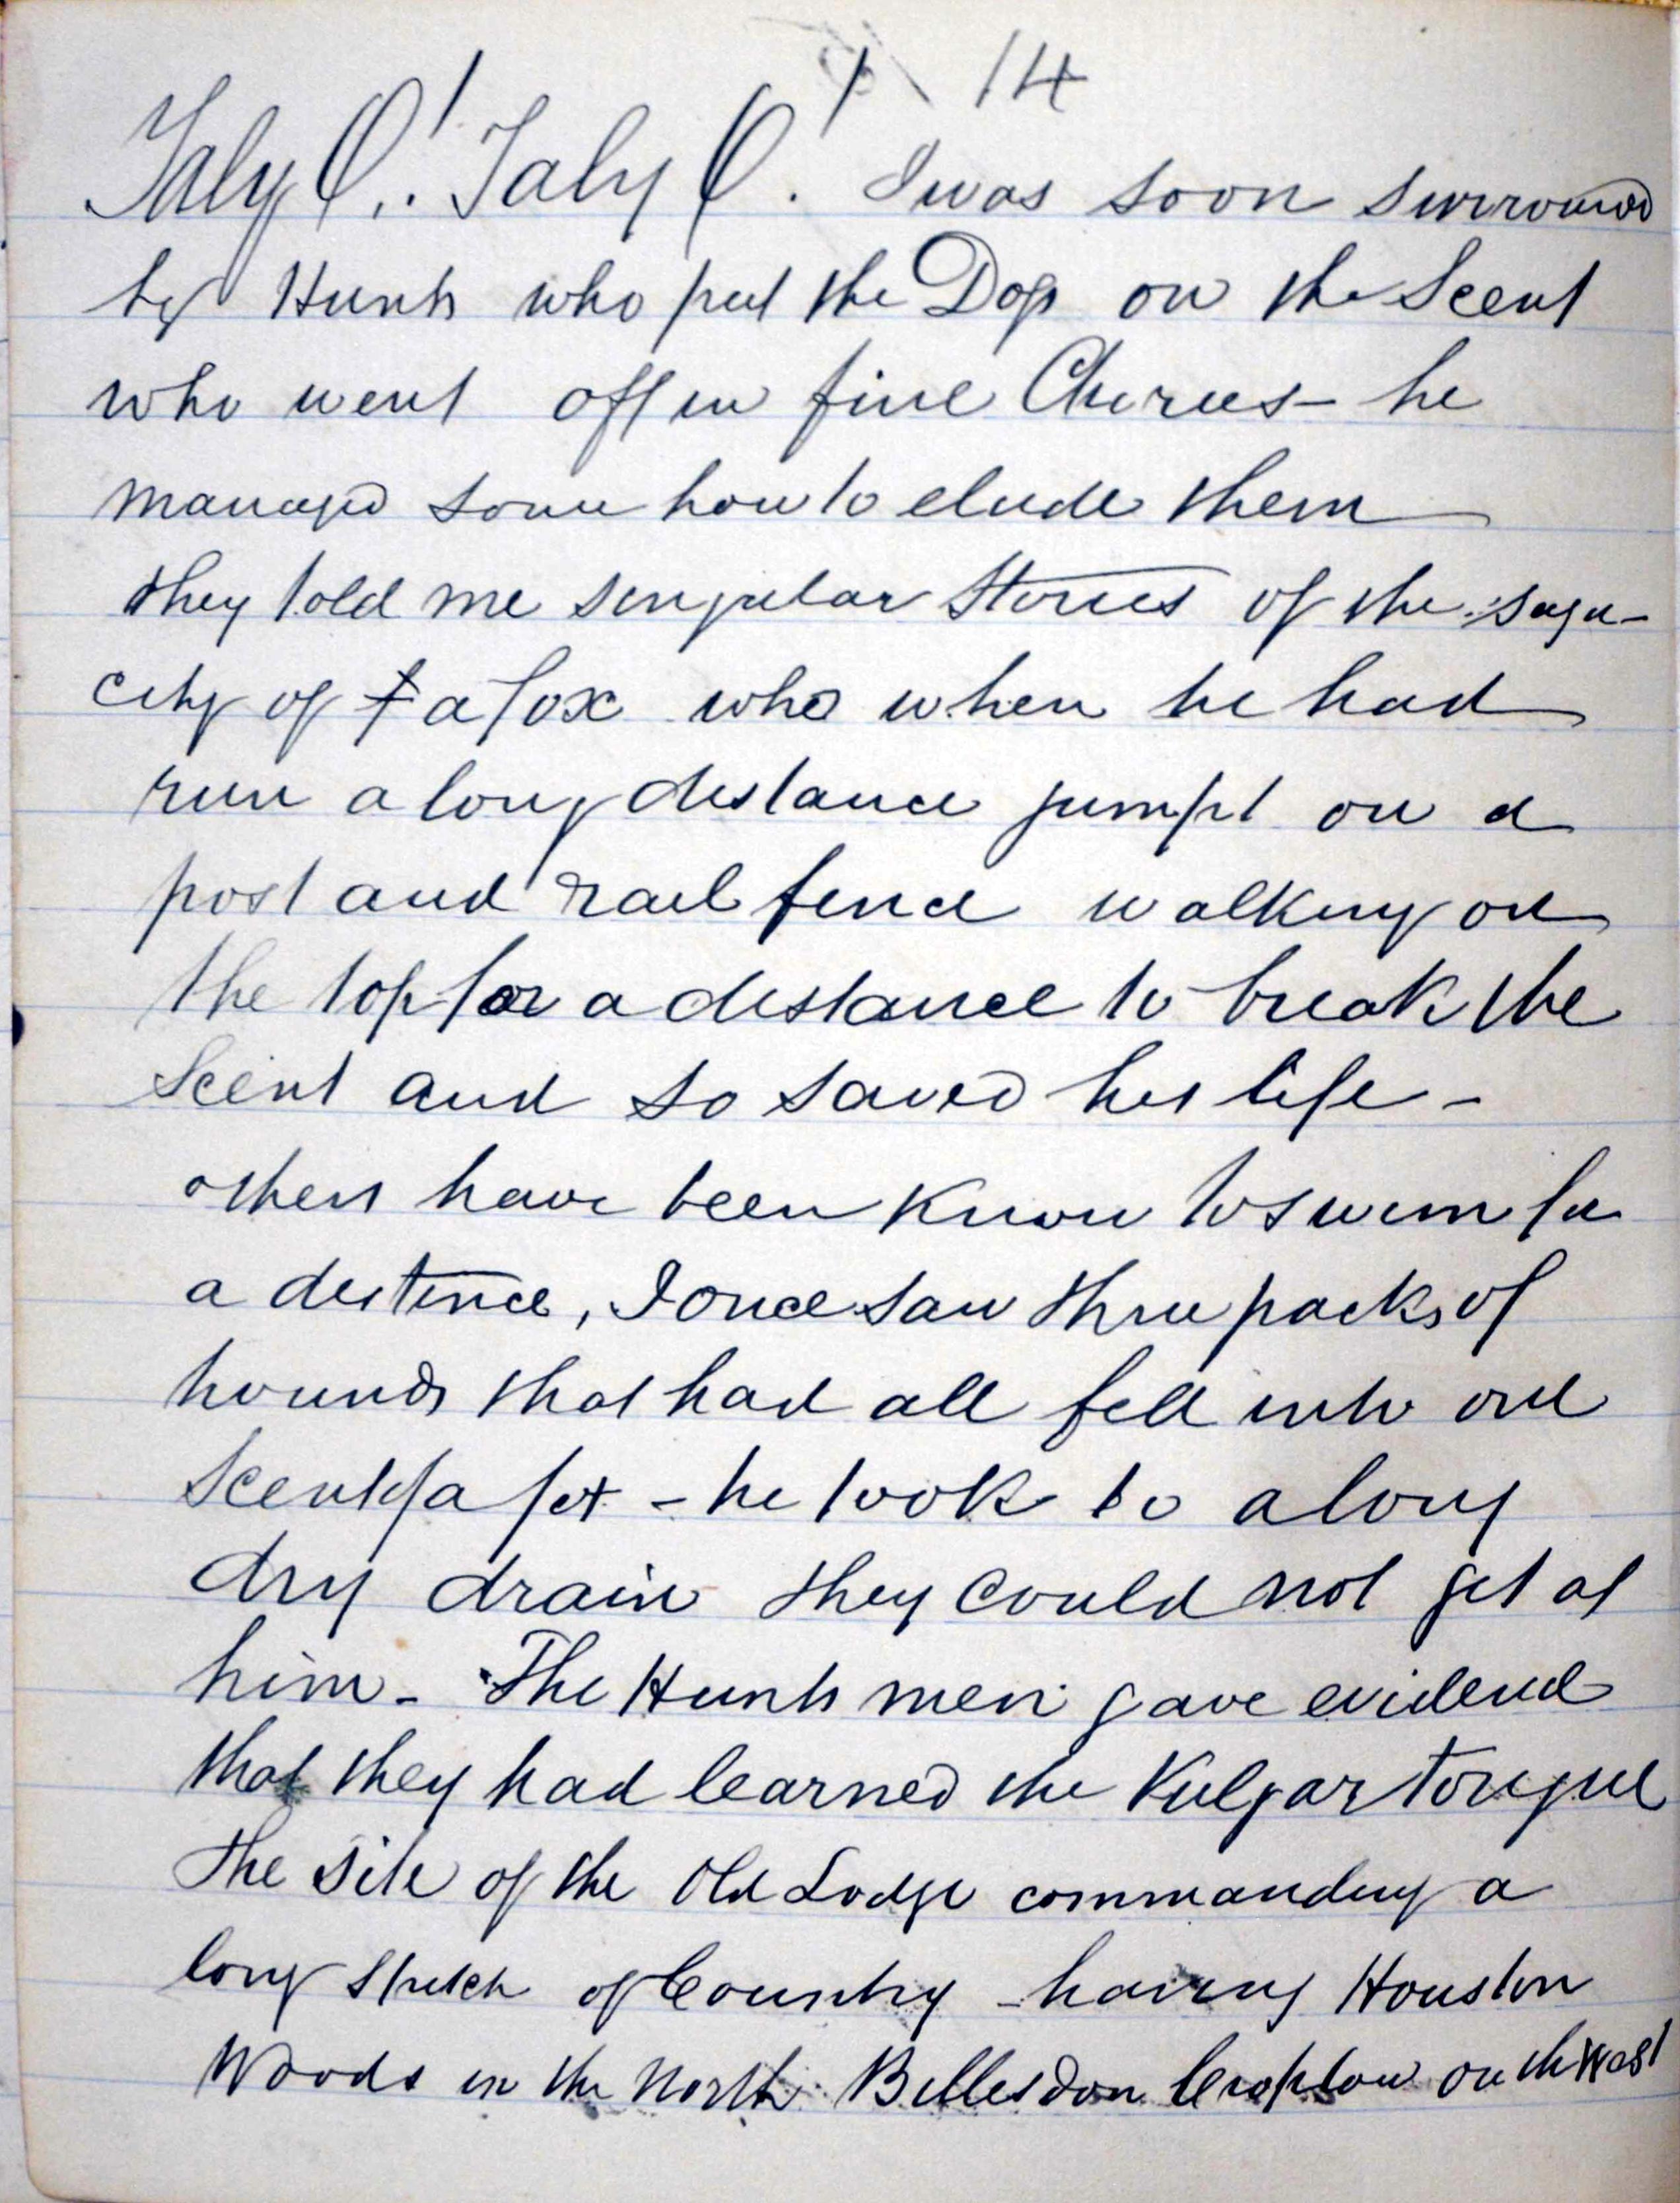 14
Taly O! Taly O! I was soon surround
by Hunts who put the Dogs on the Scent
who went off in fine Chorus - he
managed some how to elude them
they told me singular Stories of the saga-
city of f a fox who when he had
run a long distance jumpt on a
post and rail fence walking on
the top for a distance to break the
Scent and so saved his life -
others have been known to swim for
a distence, I once saw three packs of
hounds that had all fell into one
Scent of a fox - he took to a long
dry drain they could not get at
him - The Hunts men gave evidence
that they had learned the Vulgar tongue
The site of the Old Lodge commanding a
long stretch of Country - having Houston
Woods in the North Billesdon Coplow on the West